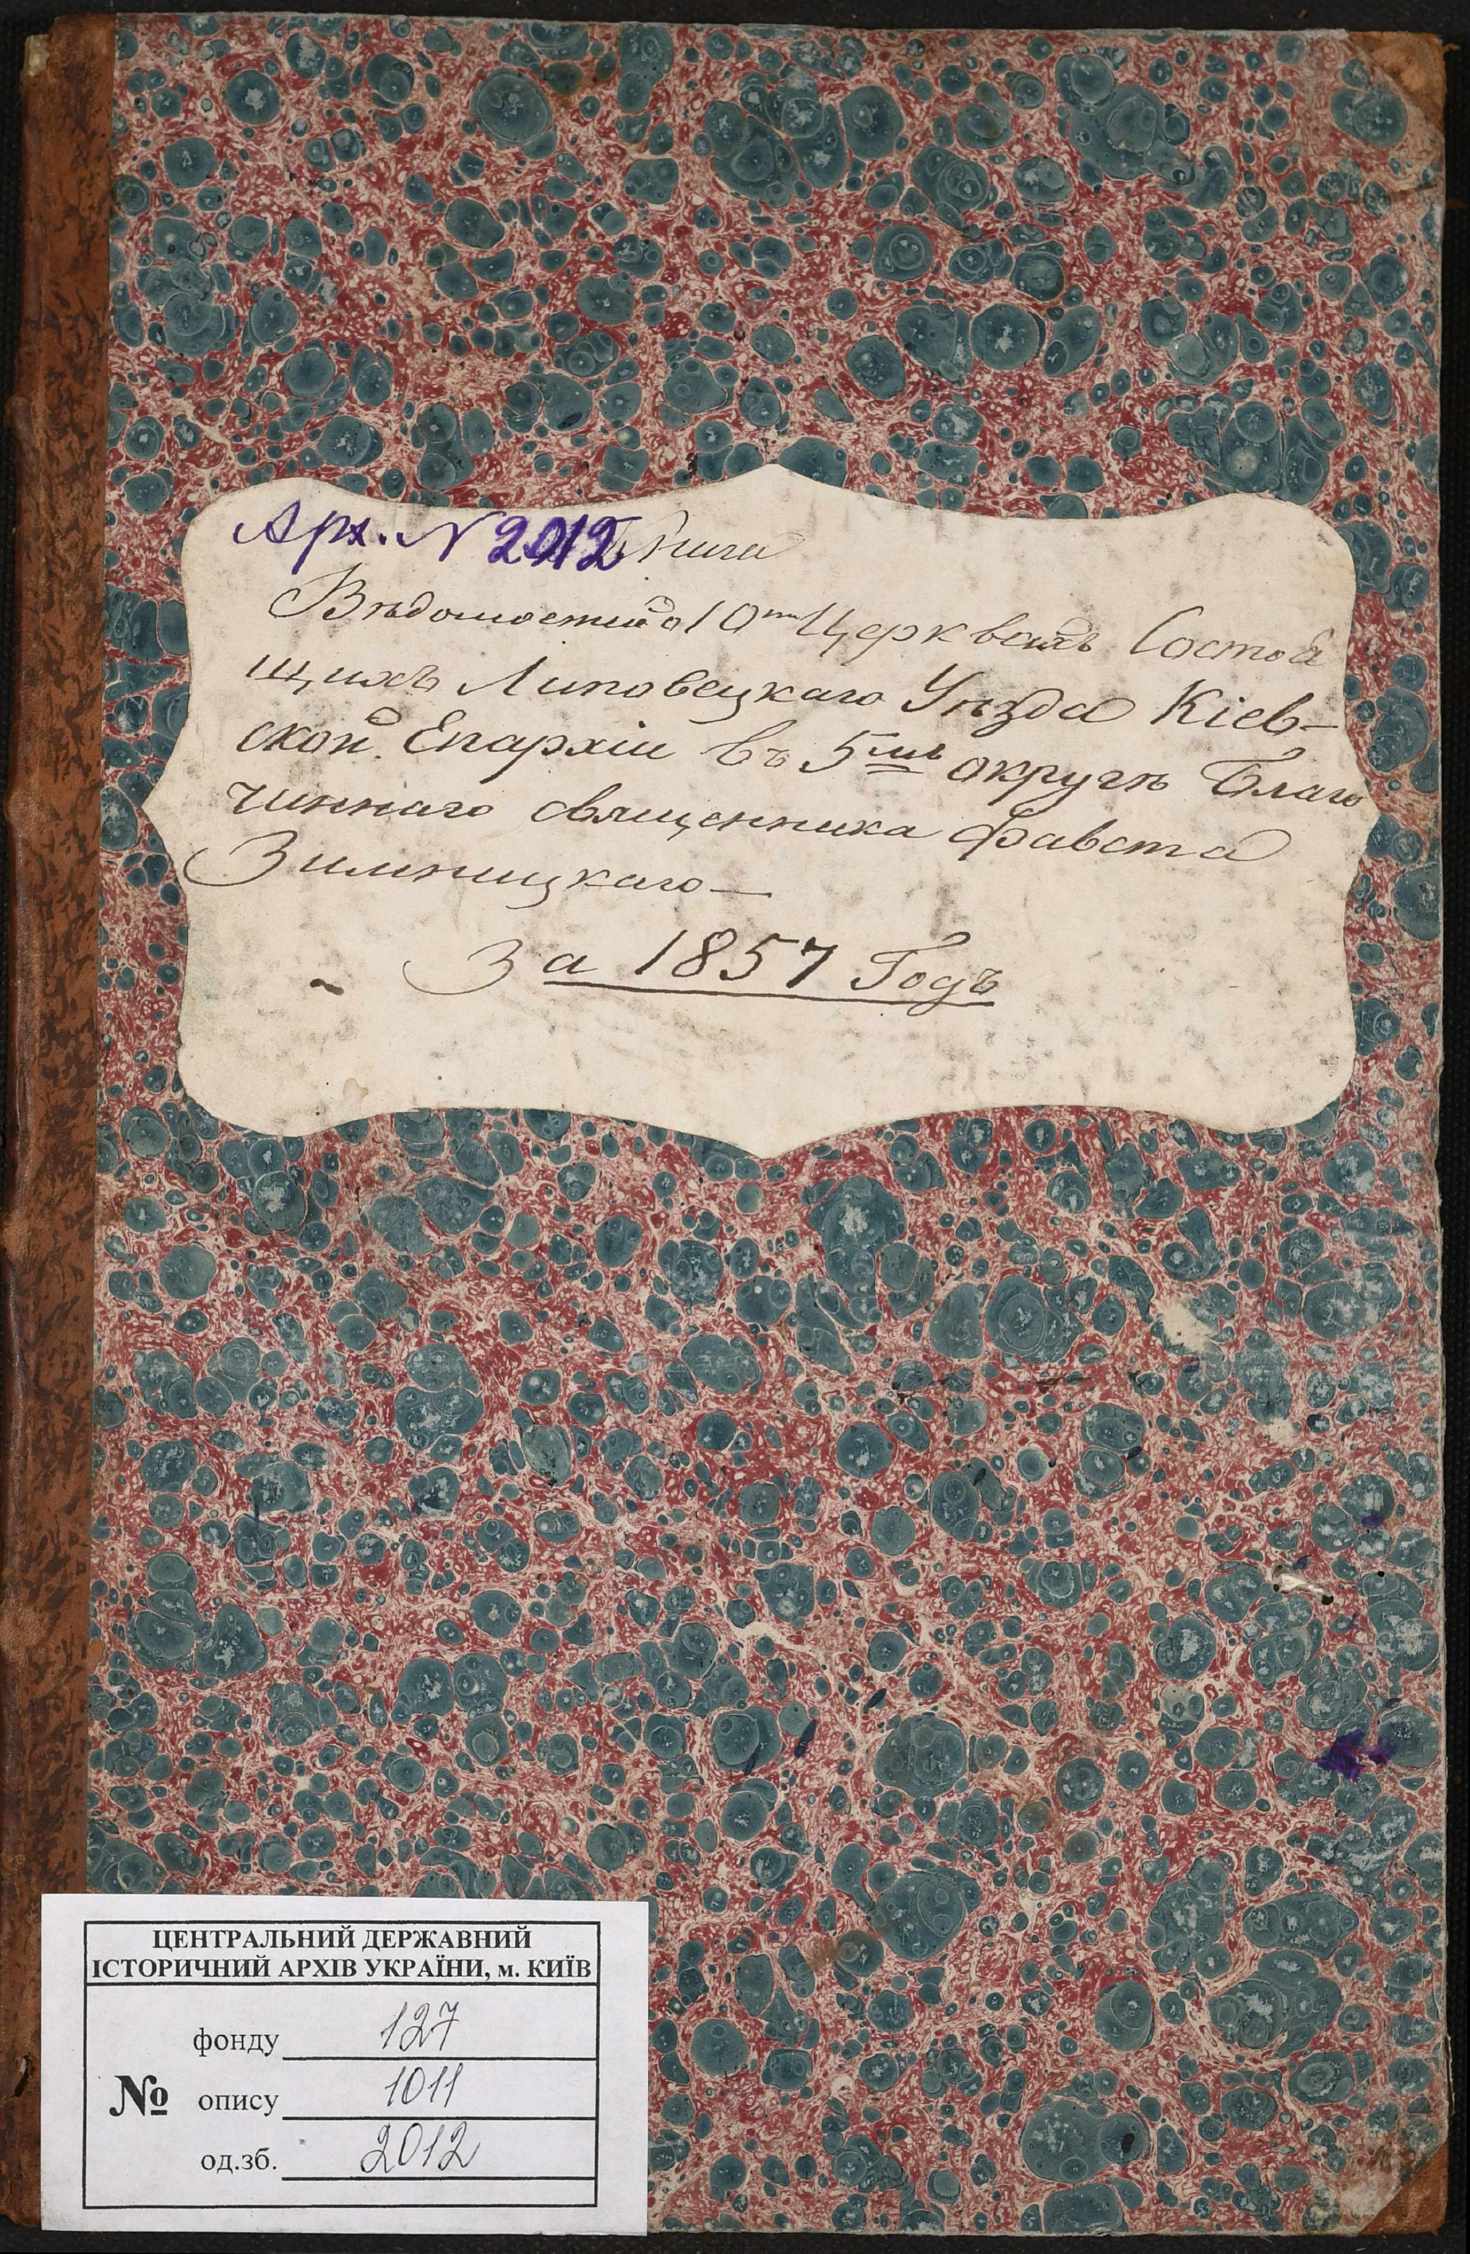 Арх. N 2012 Книга
Вѣдомостей о 10ти Церквахъ Состоя
щихъ Липовецкаго Уѣзда Кіев-
ской Епархіи въ 5мъ округѣ Благо
чиннаго священника Фавста
Зимницкаго—
За 1857 Годъ
ЦЕНТРАЛЬНИЙ ДЕРЖАВНИЙ
ІСТОРИЧНИЙ АРХІВ УКРАЇНИ, м. КИЇВ
фонду 127
№ опису 1011
од.зб. 2012